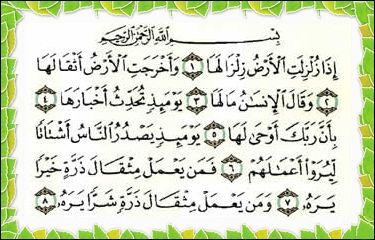 بِسْمِ اللَّهِ الرَّحْمَٰنِ الرَّحِيمِ
إِذَا زُلْزِلَتِ الْأَرْضُ زِلْزَالَهَا ١ وَأَخْرَجَتِ الْأَرْضُ أَثْقَالَهَا
٢ وَقَالَ الْإِنْسَٰنُ مَا لَهَا ٣ يَوْمَئِذٍ تُحَدِّثُ أَخْبَارَهَا ٤
بِأَنَّ رَبَّكَ أَوْحَىٰ لَهَا ٥ يَوْمَئِذٍ يَصْدُرُ النَّاسُ أَشْتَاتًا
لِّيُرَوْا أَعْمَٰلَهُمْ ٦ فَمَن يَعْمَلْ مِثْقَالَ ذَرَّةٍ خَيْرًا
يَرَهُۥ ٧ وَمَن يَعْمَلْ مِثْقَالَ ذَرَّةٍ شَرًّا يَرَهُۥ ٨